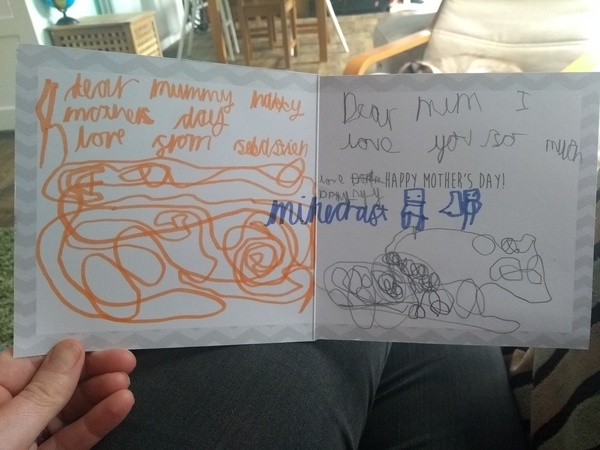 dear mummy happy
mothers day
love from sebastien
Dear mum I
love you so much
love
HAPPY MOTHER'S DAY!
minecraft